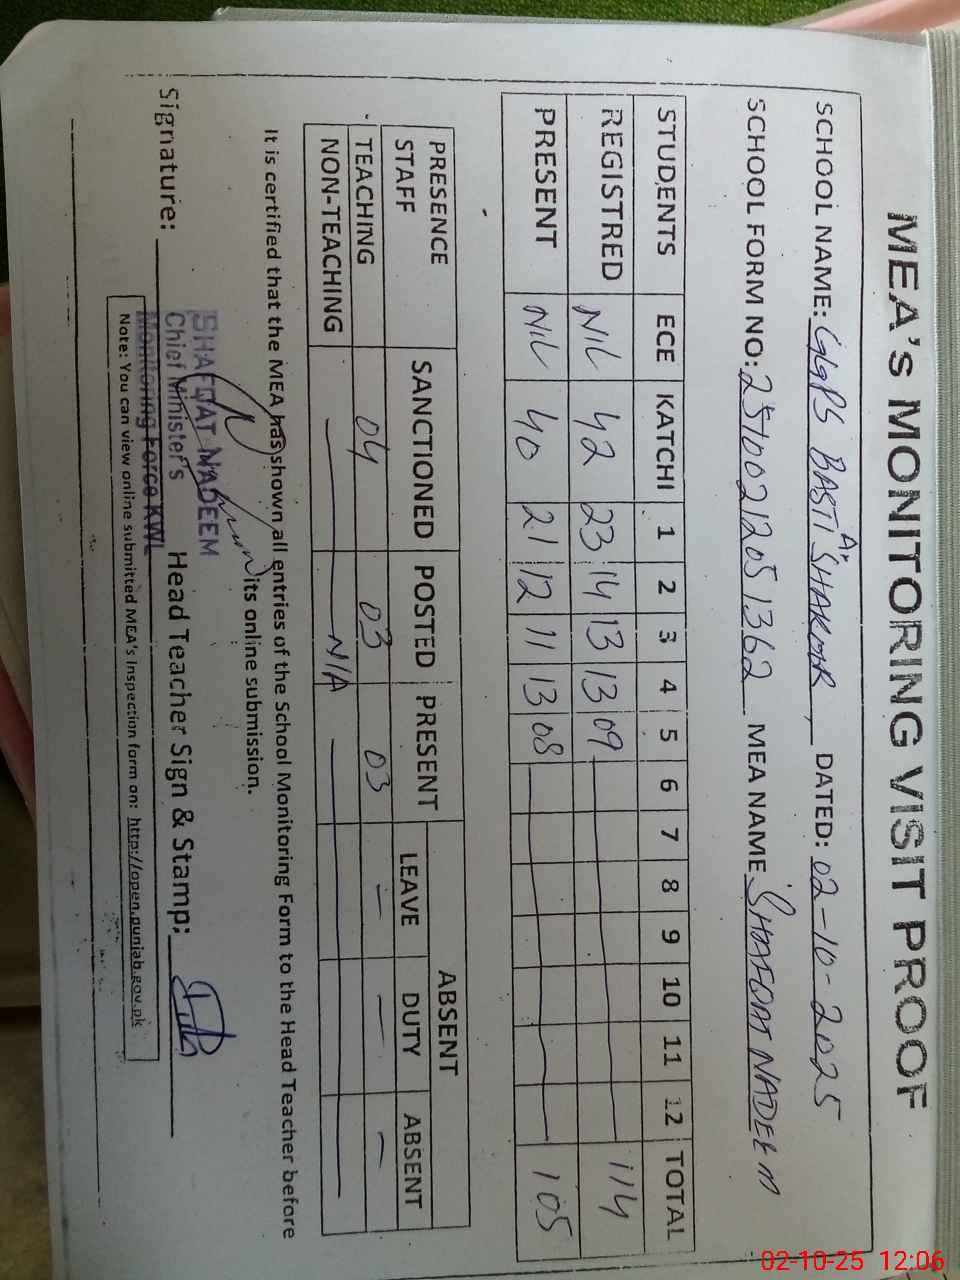 MEA's MONITORING VISIT PROOF
SCHOOL NAME: GGPS BASTI A. SHAKOOR, DATED: 02-10-2025
SCHOOL FORM NO: 25100212051362 MEA NAME SHAFQAT NADEEM
STUDENTS ECE KATCHI 1 2 3 4 5 6 7 8 9 10 11 12 TOTAL
REGISTRED NIL 42 23 14 13 13 09 114
PRESENT NIL 40 21 12 11 13 08 105
PRESENCE STAFF SANCTIONED POSTED PRESENT ABSENT
LEAVE DUTY ABSENT
TEACHING 04 03 03 — — —
NON-TEACHING — N/A —
It is certified that the MEA has shown all entries of the School Monitoring Form to the Head Teacher before
its online submission.
SHAFQAT NADEEM
Chief Minister's
Monitoring Force KWL
Signature: Head Teacher Sign & Stamp:
Note: You can view online submitted MEA's Inspection form on: http://open.punjab.gov.pk
02-10-25 12:06